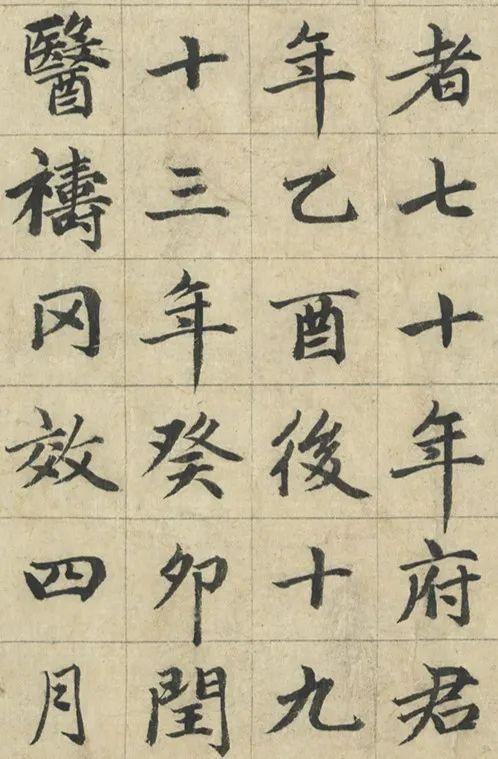 者七十年府君
年乙酉後十九
十三年癸卯閏
醫禱罔效四月